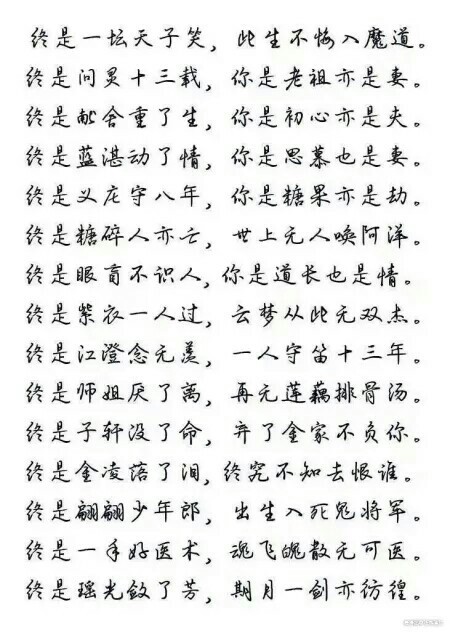 终是一坛天子笑，此生不悔入魔道。
终是问灵十三载，你是老祖亦是妻。
终是献舍重了生，你是初心亦是夫。
终是蓝湛动了情，你是思慕也是妻。
终是义庄守八年，你是糖果亦是劫。
终是糖碎人亦亡，世上无人唤阿洋。
终是眼盲不识人，你是道长也是情。
终是紫衣一人过，云梦从此无双杰。
终是江澄念无羡，一人守笛十三年。
终是师姐厌了离，再无莲藕排骨汤。
终是子轩没了命，弃了金家不负你。
终是金凌落了泪，终究不知去恨谁。
终是翩翩少年郎，出生入死鬼将军。
终是一手好医术，魂飞魄散无可医。
终是瑶光敛了芳，期月一剑亦彷徨。